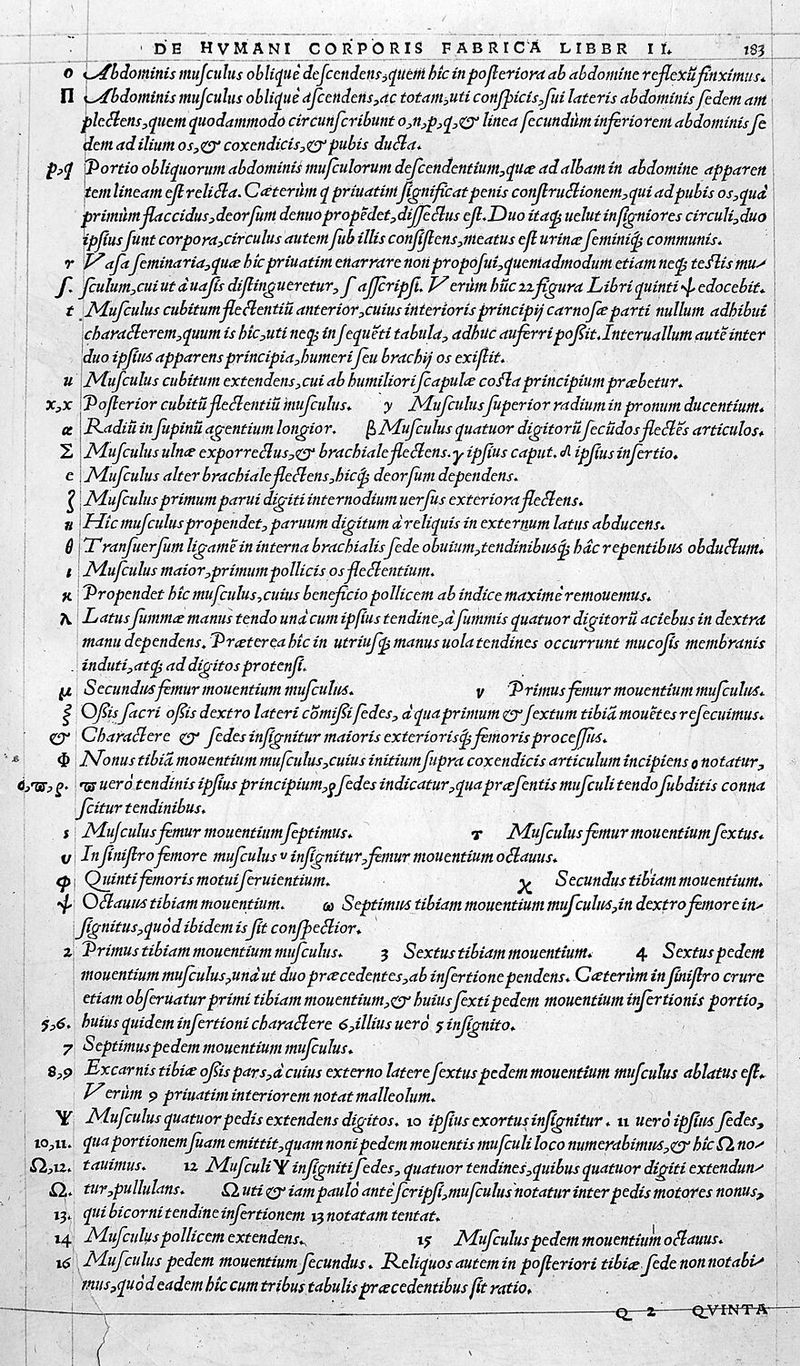 DE HVMANI CORPORIS FABRICA LIBER II. 183
o Abdominis muſculus obliquè deſcendens,quem hîc in poſteriora ab abdomine reflexũ finximus.
Π Abdominis muſculus obliquè aſcendens,ac totam,uti conſpicis,ſui lateris abdominis ſedem am
plectens,quem quodammodo circunſcribunt o,n,p,q,& linea ſecundùm inferiorem abdominis ſe
dem ad ilium os,& coxendicis,& pubis ducta.
p,q Portio obliquorum abdominis muſculorum deſcendentium,quæ ad albam in abdomine apparen
tem lineam eſt relicta. Cæterùm q priuatim ſignificat penis conſtructionem,qui ad pubis os,quà
primùm flaccidus,deorſum denuo propẽdet,diſſectus eſt. Duo itaq; uelut inſigniores circuli,duo
ipſius ſunt corpora,circulus autem ſub illis conſiſtens,meatus eſt urinæ ſeminiq; communis.
r Vaſa ſeminaria,quæ hîc priuatim enarrare non propoſui,quemadmodum etiam neq; teſtis mu-
ſ. ſculum,cui ut à uaſis diſtingueretur, ſ aſſcripſi. Verùm hũc 22 figura Libri quinti ψ edocebit.
t Muſculus cubitum flectentiũ anterior,cuius interioris principij carnoſæ parti nullum adhibui
characterem,quum is hîc,uti neq; in ſequẽti tabula, adhuc auferri poßit. Interuallum autẽ inter
duo ipſius apparens principia,humeri ſeu brachij os exiſtit.
u Muſculus cubitum extendens,cui ab humiliori ſcapulæ coſta principium præbetur.
x,x Poſterior cubitũ flectentiũ muſculus. y Muſculus ſuperior radium in pronum ducentium.
α Radiũ in ſupinũ agentium longior. β Muſculus quatuor digitorũ ſecũdos flectẽs articulos.
Σ Muſculus ulnæ exporrectus,& brachiale flectens. γ ipſius caput. δ ipſius inſertio.
ε Muſculus alter brachiale flectens,hicq; deorſum dependens.
ζ Muſculus primum parui digiti internodium uerſus exteriora flectens.
η Hîc muſculus propendet, paruum digitum à reliquis in externum latus abducens.
θ Tranſuerſum ligamẽ in interna brachialis ſede obuium,tendinibusq; hâc repentibus obductum.
ι Muſculus maior,primum pollicis os flectentium.
κ Propendet hîc muſculus,cuius beneficio pollicem ab indice maximè remouemus.
λ Latus ſummæ manus tendo unà cum ipſius tendine,à ſummis quatuor digitorũ aciebus in dextra
manu dependens. Præterea hîc in utriuſq; manus uola tendines occurrunt mucoſis membranis
induti,atq; ad digitos protenſi.
μ Secundus femur mouentium muſculus. ν Primus femur mouentium muſculus.
ξ Oßis ſacri oßis dextro lateri cõmißi ſedes, à qua primum & ſextum tibiã mouẽtes reſecuimus.
& Charactere & ſedes inſignitur maioris exteriorisq; femoris proceſſus.
Φ Nonus tibiã mouentium muſculus,cuius initium ſupra coxendicis articulum incipiens ο notatur,
ο,ϖ,ρ. ϖ uerò tendinis ipſius principium,ρ ſedes indicatur,qua præſentis muſculi tendo ſubditis conna
ſcitur tendinibus.
s Muſculus femur mouentium ſeptimus. τ Muſculus femur mouentium ſextus.
υ In ſiniſtro femore muſculus υ inſignitur,femur mouentium octauus.
φ Quinti femoris motui ſeruientium. χ Secundus tibiam mouentium.
ψ Octauus tibiam mouentium. ω Septimus tibiam mouentium muſculus,in dextro femore in-
ſignitus,quòd ibidem is ſit conſpectior.
2 Primus tibiam mouentium muſculus. 3 Sextus tibiam mouentium. 4 Sextus pedem
mouentium muſculus,unà ut duo præcedentes,ab inſertione pendens. Cæterùm in ſiniſtro crure
etiam obſeruatur primi tibiam mouentium,& huius ſexti pedem mouentium inſertionis portio,
5,6. huius quidem inſertioni charactere 6,illius uerò 5 inſignito.
7 Septimus pedem mouentium muſculus.
8,9 Excarnis tibiæ oßis pars,à cuius externo latere ſextus pedem mouentium muſculus ablatus eſt.
Verùm 9 priuatim interiorem notat malleolum.
Ψ Muſculus quatuor pedis extendens digitos. 10 ipſius exortus inſignitur. 11 uerò ipſius ſedes,
10,11. qua portionem ſuam emittit,quam noni pedem mouentis muſculi loco numerabimus,& hîc Ω no-
Ω,12. tauimus. 12 Muſculi Ψ inſigniti ſedes, quatuor tendines,quibus quatuor digiti extendun-
Ω. tur,pullulans. Ω uti & iam paulò antè ſcripſi,muſculus notatur inter pedis motores nonus,
13. qui bicorni tendine inſertionem 13 notatam tentat.
14 Muſculus pollicem extendens. 15 Muſculus pedem mouentium octauus.
16 Muſculus pedem mouentium ſecundus. Reliquos autem in poſteriori tibiæ ſede non notabi-
mus,quòd eadem hîc cum tribus tabulis præcedentibus ſit ratio.
Q 2 QVINTA